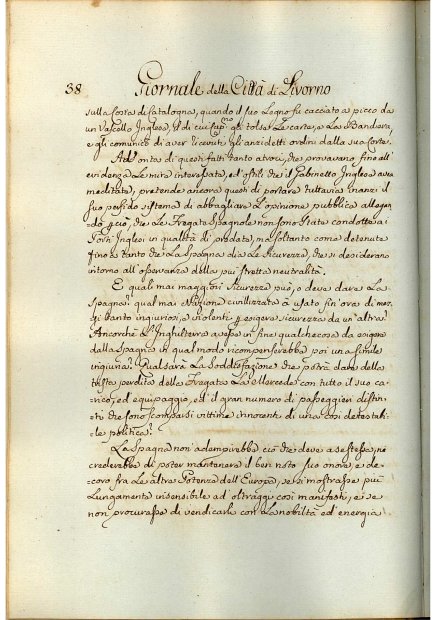 38 Giornale della Città di Livorno
sulla Costa di Catalogna, quando il suo Legno fu cacciato a picco da
un Vascello Inglese, il di cui Cap.º gli tolse Le carte, e La Bandiera,
e gli comunicò di aver ricevuti gli anzidetti ordini dalla sua Corte.
Ad' onta di questi fatti tanto atroci, che provavano fino all'
evidenza Le mire interessate, ed ostili che il Gabinetto Inglese avea
meditate, pretende ancora questi di portare tuttavia innanzi il
suo perfido sistema di abbagliare L'opinione pubblica allegan-
do che Le Fregate Spagnole non sono state condotte ai
Porti Inglesi in qualità di predate, ma soltanto come detenute
fino a tanto che La Spagna dia Le sicurezze, che si desiderano
intorno all'osservanza della piu stretta neutralità.
E quali maggiori sicurezze può, o deve dare La
Spagna? qual mai Nazione civilizzata à usato fin'ora di mez-
zi tanto ingiuriosi, e violenti p esigere sicurezza da un'altra?
Ancorchè L'Inghilterra avesse in fine qualche cosa da esigere
dalla Spagna in qual modo ricompenserebbe poi una simile
ingiuria? Qual sarà La soddisfazione che potrà dare della
trista perdita della Fregata La Mercede con tutto il suo ca-
rico, ed equipaggio, ed il gran numero di passeggieri distin-
ti che sono scomparsi vittime innocenti di una così detestabi-
le politica?
La Spagna non adempirebbe ciò che deve a se stessa, nè
crederebbe di poter mantenere il ben noto suo onore, e de-
coro fra Le altre Potenze dell'Europa, se si mostrasse più
Lungamente insensibile ad oltraggi così manifesti, e se
non procurasse di vendicarli con La nobiltà ed energia